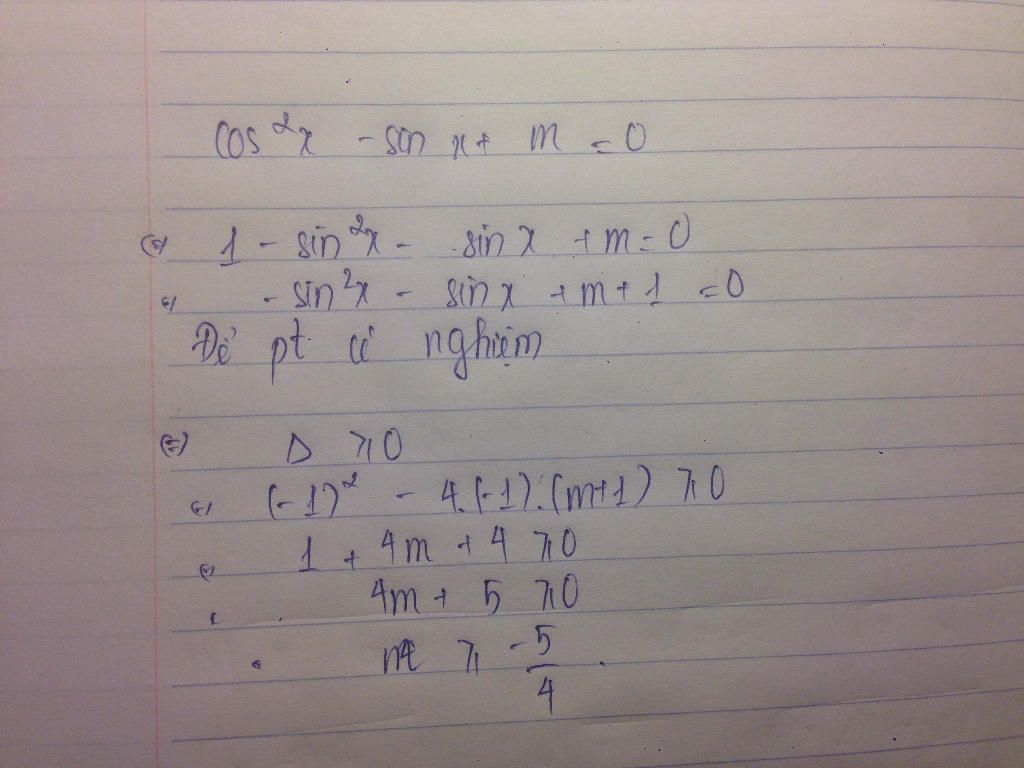 cos²x - sin x + m = 0
(=) 1 - sin²x - sin x + m = 0
(=) - sin²x - sin x + m + 1 = 0
Để pt có nghiệm
(=) Δ ≥ 0
(=) (-1)² - 4.(-1).(m+1) ≥ 0
(=) 1 + 4m + 4 ≥ 0
4m + 5 ≥ 0
m ≥ -5/4.